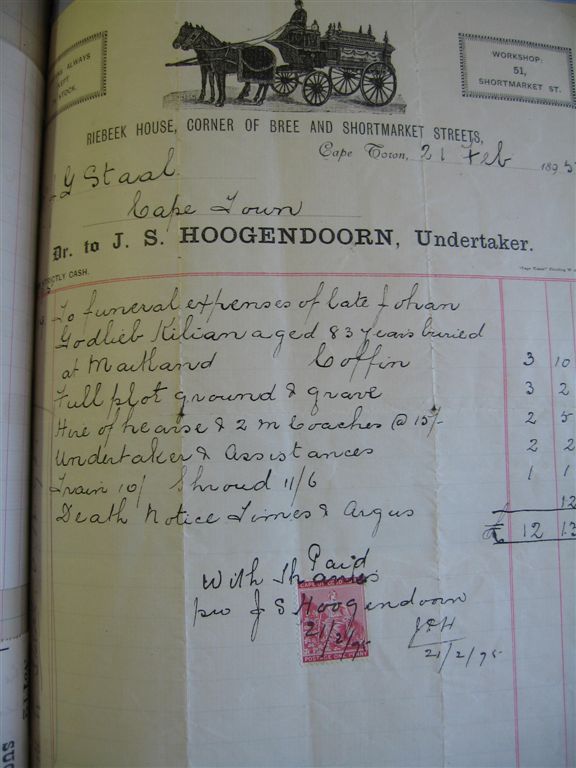 ALWAYS
KEPT
STOCK.
WORKSHOP:
51,
SHORTMARKET ST.
RIEBEEK HOUSE, CORNER OF BREE AND SHORTMARKET STREETS,
Cape Town, 21 Feb 1895
G Staal
Cape Town
Dr. to J. S. HOOGENDOORN, Undertaker.
STRICTLY CASH.
To funeral expenses of late Johan
Godlieb Kilian aged 83 years buried
at Maitland Coffin 3 10
Full plot ground & grave 3 2
Hire of hearse & 2 m Coaches @ 15/- 2 5
Undertaker & Assistances 2 2
Train 10/ Shroud 11/6 1 1
Death Notice Times & Argus 12
£ 12 13
Paid
With Thanks
pro J S Hoogendoorn
21/2/95
JSH
21/2/95
POSTAGE ONE PENNY